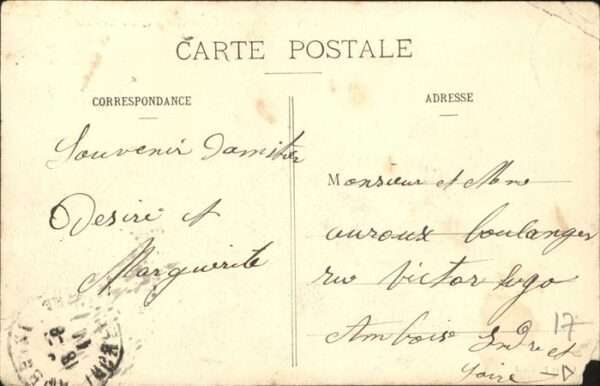 CARTE POSTALE
CORRESPONDANCE
ADRESSE
Souvenir damitier
Desiré et
Marguerite
Monsieur et Mme
auroux boulanger
ru Victor hugo
Amboise Indre et
Loire
17